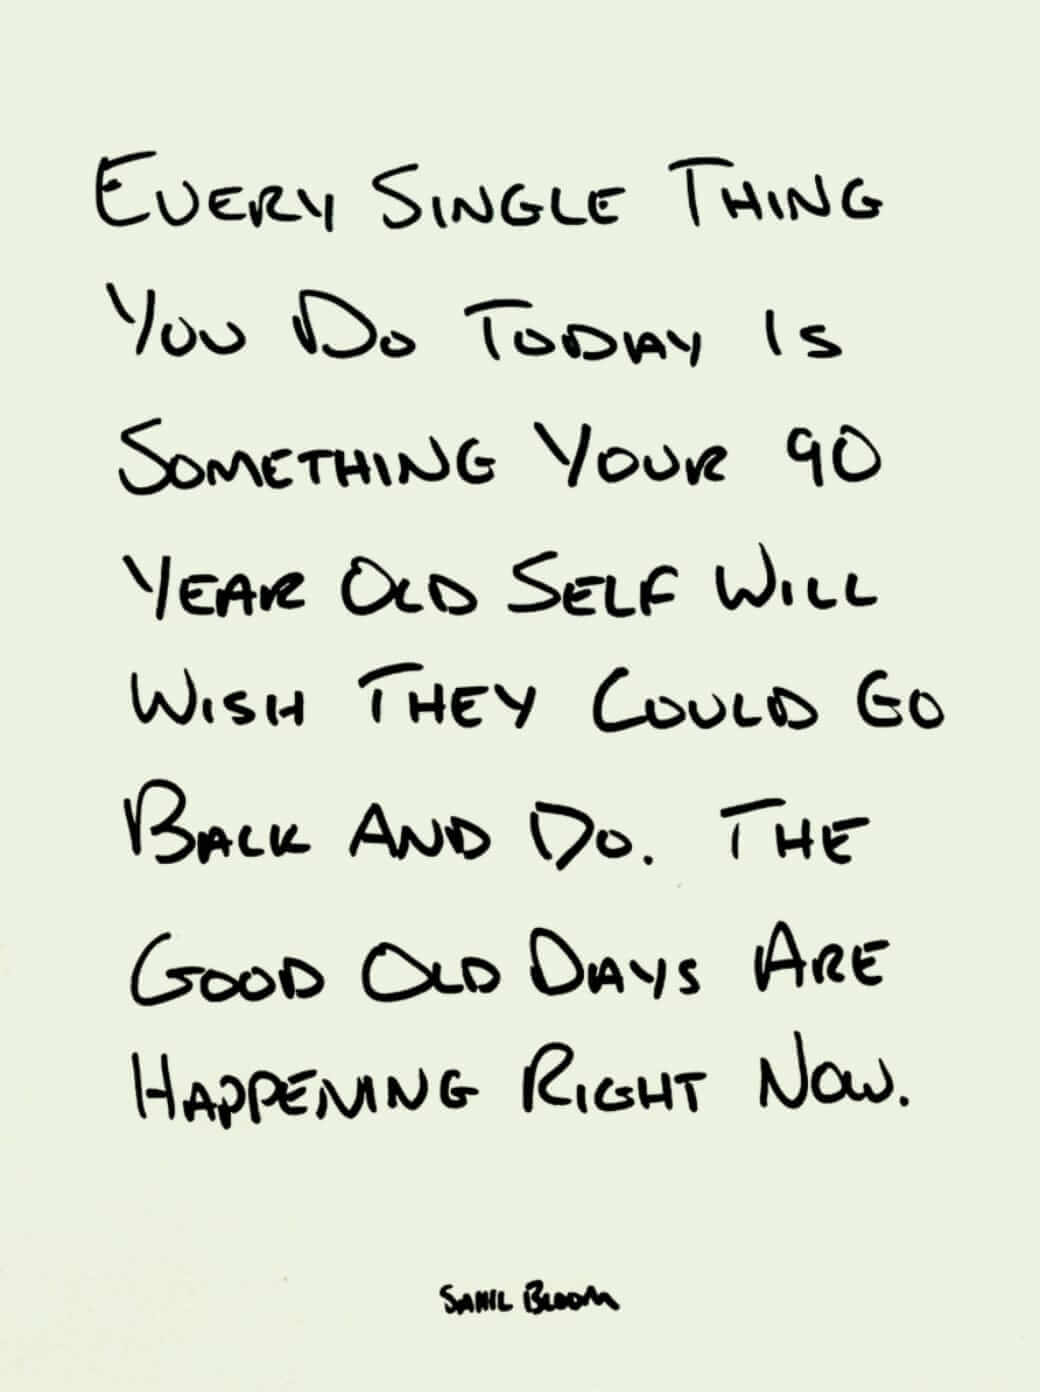 Every Single Thing
You Do Today Is
Something Your 90
Year Old Self Will
Wish They Could Go
Back And Do. The
Good Old Days Are
Happening Right Now.
Sahil Bloom